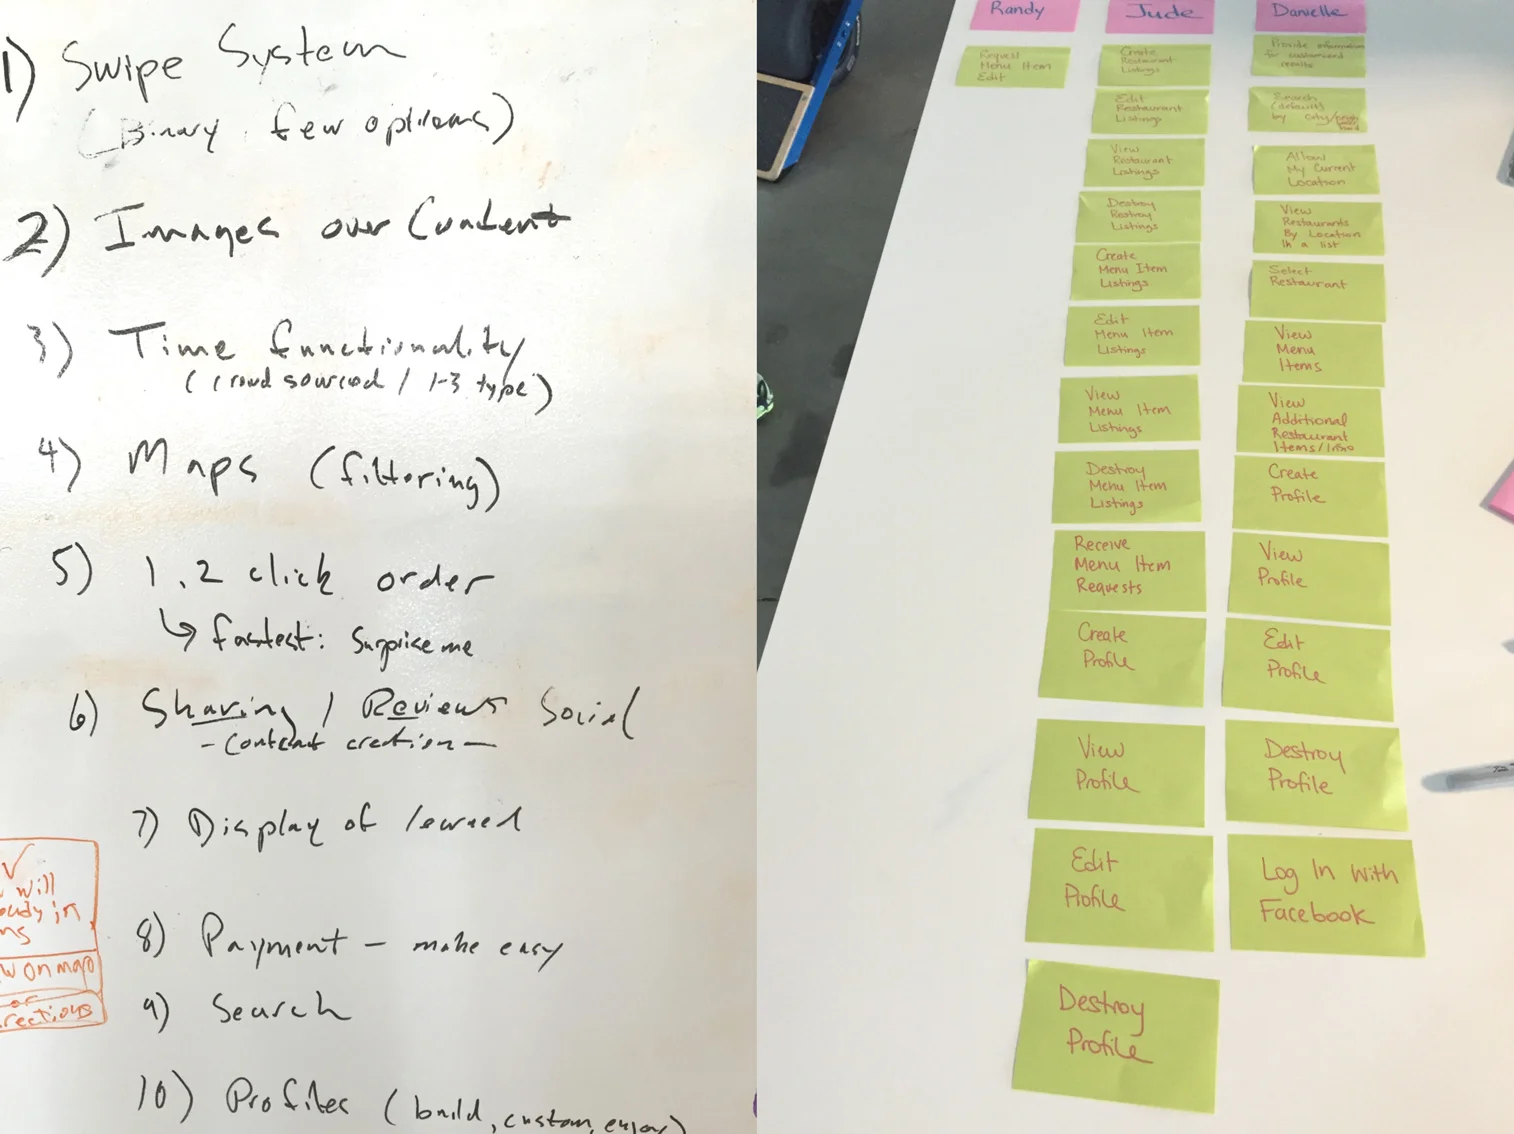 1) Swipe System
(Binary, few options)
2) Images over Content
3) Time functionality
(crowd sourced / 1-3 type)
4) Maps (filtering)
5) 1, 2 click order
↳ fastest: Surprise me
6) Sharing / Reviews Social
- content creation -
7) Display of learned
8) Payment - make easy
9) Search
10) Profiles (build, custom, enjoy)
will
in
on map
or
Randy
Request
Menu Item
Edit
Jude
Create
Restaurant
Listings
Edit
Restaurant
Listings
View
Restaurant
Listings
Destroy
Restroy
Listings
Create
Menu Item
Listings
Edit
Menu Item
Listings
View
Menu Item
Listings
Destroy
Menu Item
Listings
Receive
Menu Item
Requests
Create
Profile
View
Profile
Edit
Profile
Destroy
Profile
Danielle
Provide information
for customized
results
Search
(default)
by City/
Allow
My Current
Location
View
Restaurants
By Location
In a list
Select
Restaurant
View
Menu
Items
View
Additional
Restaurant
Items/Info
Create
Profile
View
Profile
Edit
Profile
Destroy
Profile
Log In With
Facebook